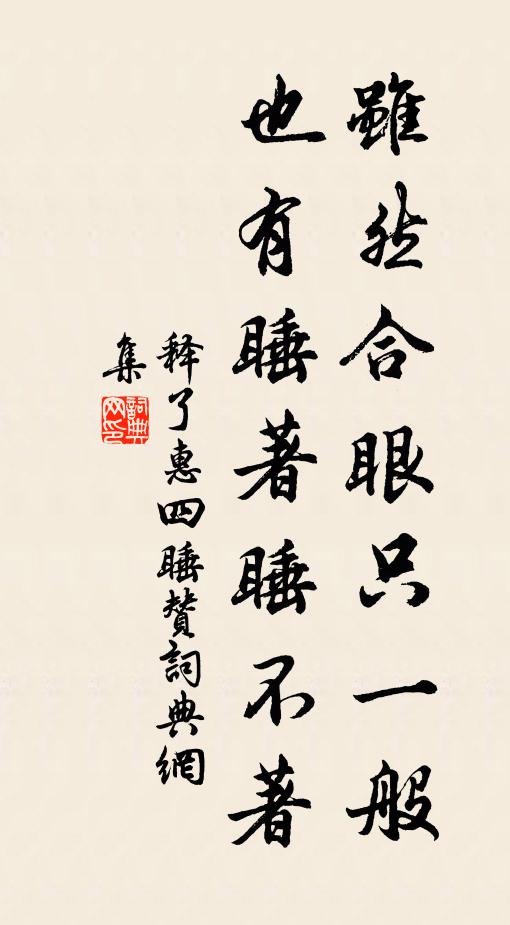 雖然合眼只一般
也有睡著睡不著
释了惠四睡贊詞典網
集
詞典
网印